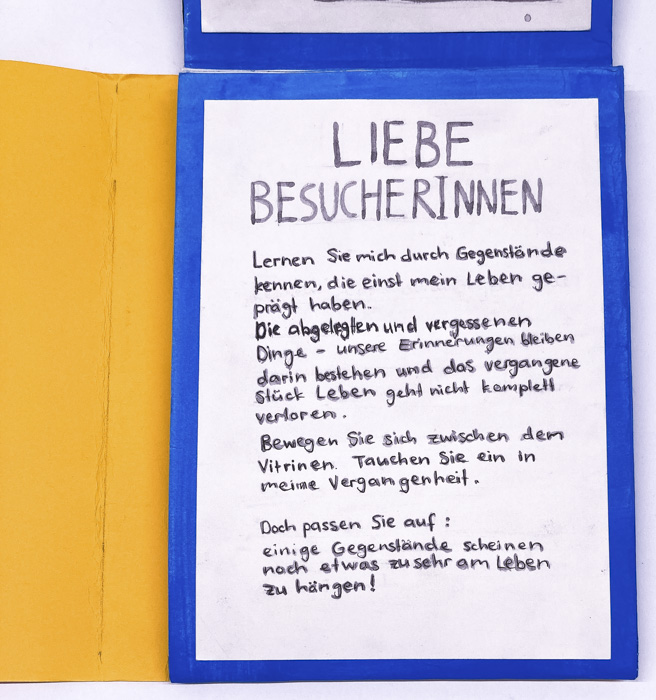 LIEBE
BESUCHERINNEN
Lernen Sie mich durch Gegenstände
kennen, die einst mein Leben ge-
prägt haben.
Die abgelegten und vergessenen
Dinge - unsere Erinnerungen bleiben
darin bestehen und das vergangene
Stück Leben geht nicht komplett
verloren.
Bewegen Sie sich zwischen den
Vitrinen. Tauchen Sie ein in
meine Vergangenheit.
Doch passen Sie auf:
einige Gegenstände scheinen
noch etwas zu sehr am Leben
zu hängen!